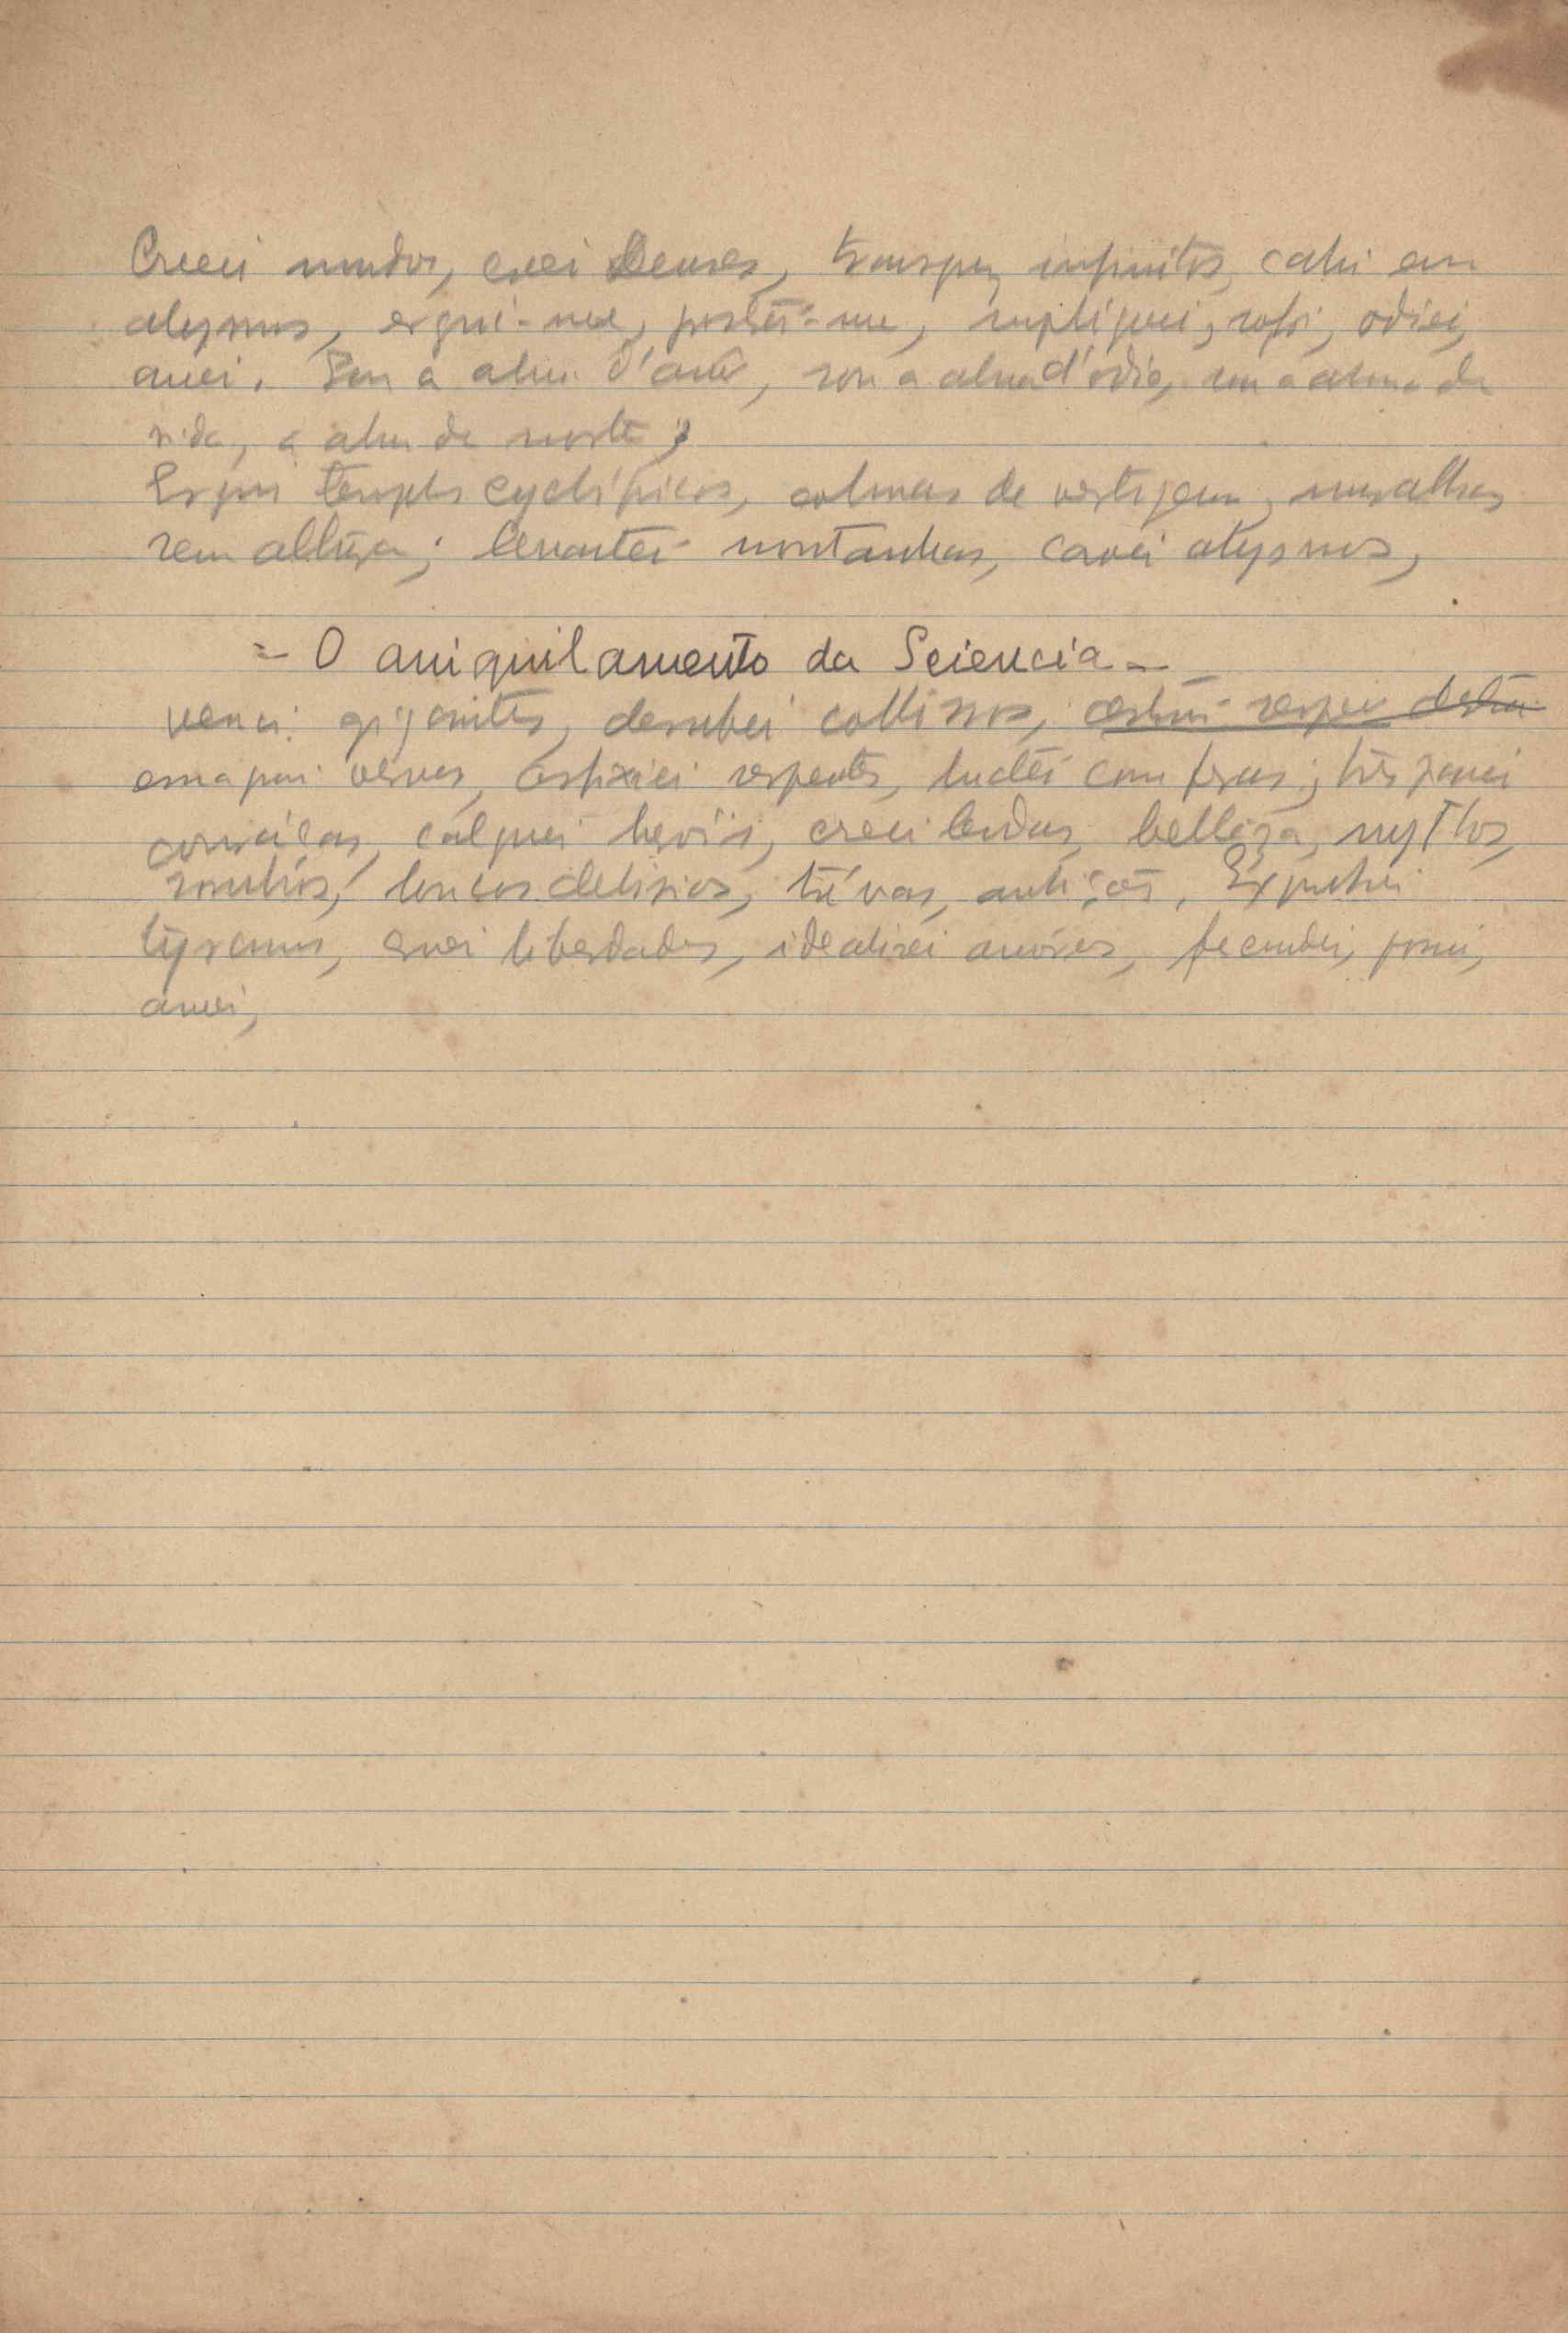 Creei mundos, creei Deuses, transpuz infinitos, cahi em
abysmos, ergui-me, prostei-me, suppliquei, soffri, odiei,
amei. Sou a alma d'amôr, sou a alma d'odio, sou a alma da
vida, a alma da morte;
Ergui templos cyclópicos, colunas de vertigem, muralhas
sem altura; levantei montanhas, cavei abysmos,
= O aniquilamento da Sciencia =
venci gigantes, derrubei collossos,
esmaguei vermes, asfixiei serpentes, luctei com feras; trespassei
couraças, calquei heróis, creei lendas, belleza, mythos,
sonhos, loucos delirios, trévas, ambições. Expulsei
tyrannos, criei liberdades, idealisei amôres, fecundei, gosei,
amei,